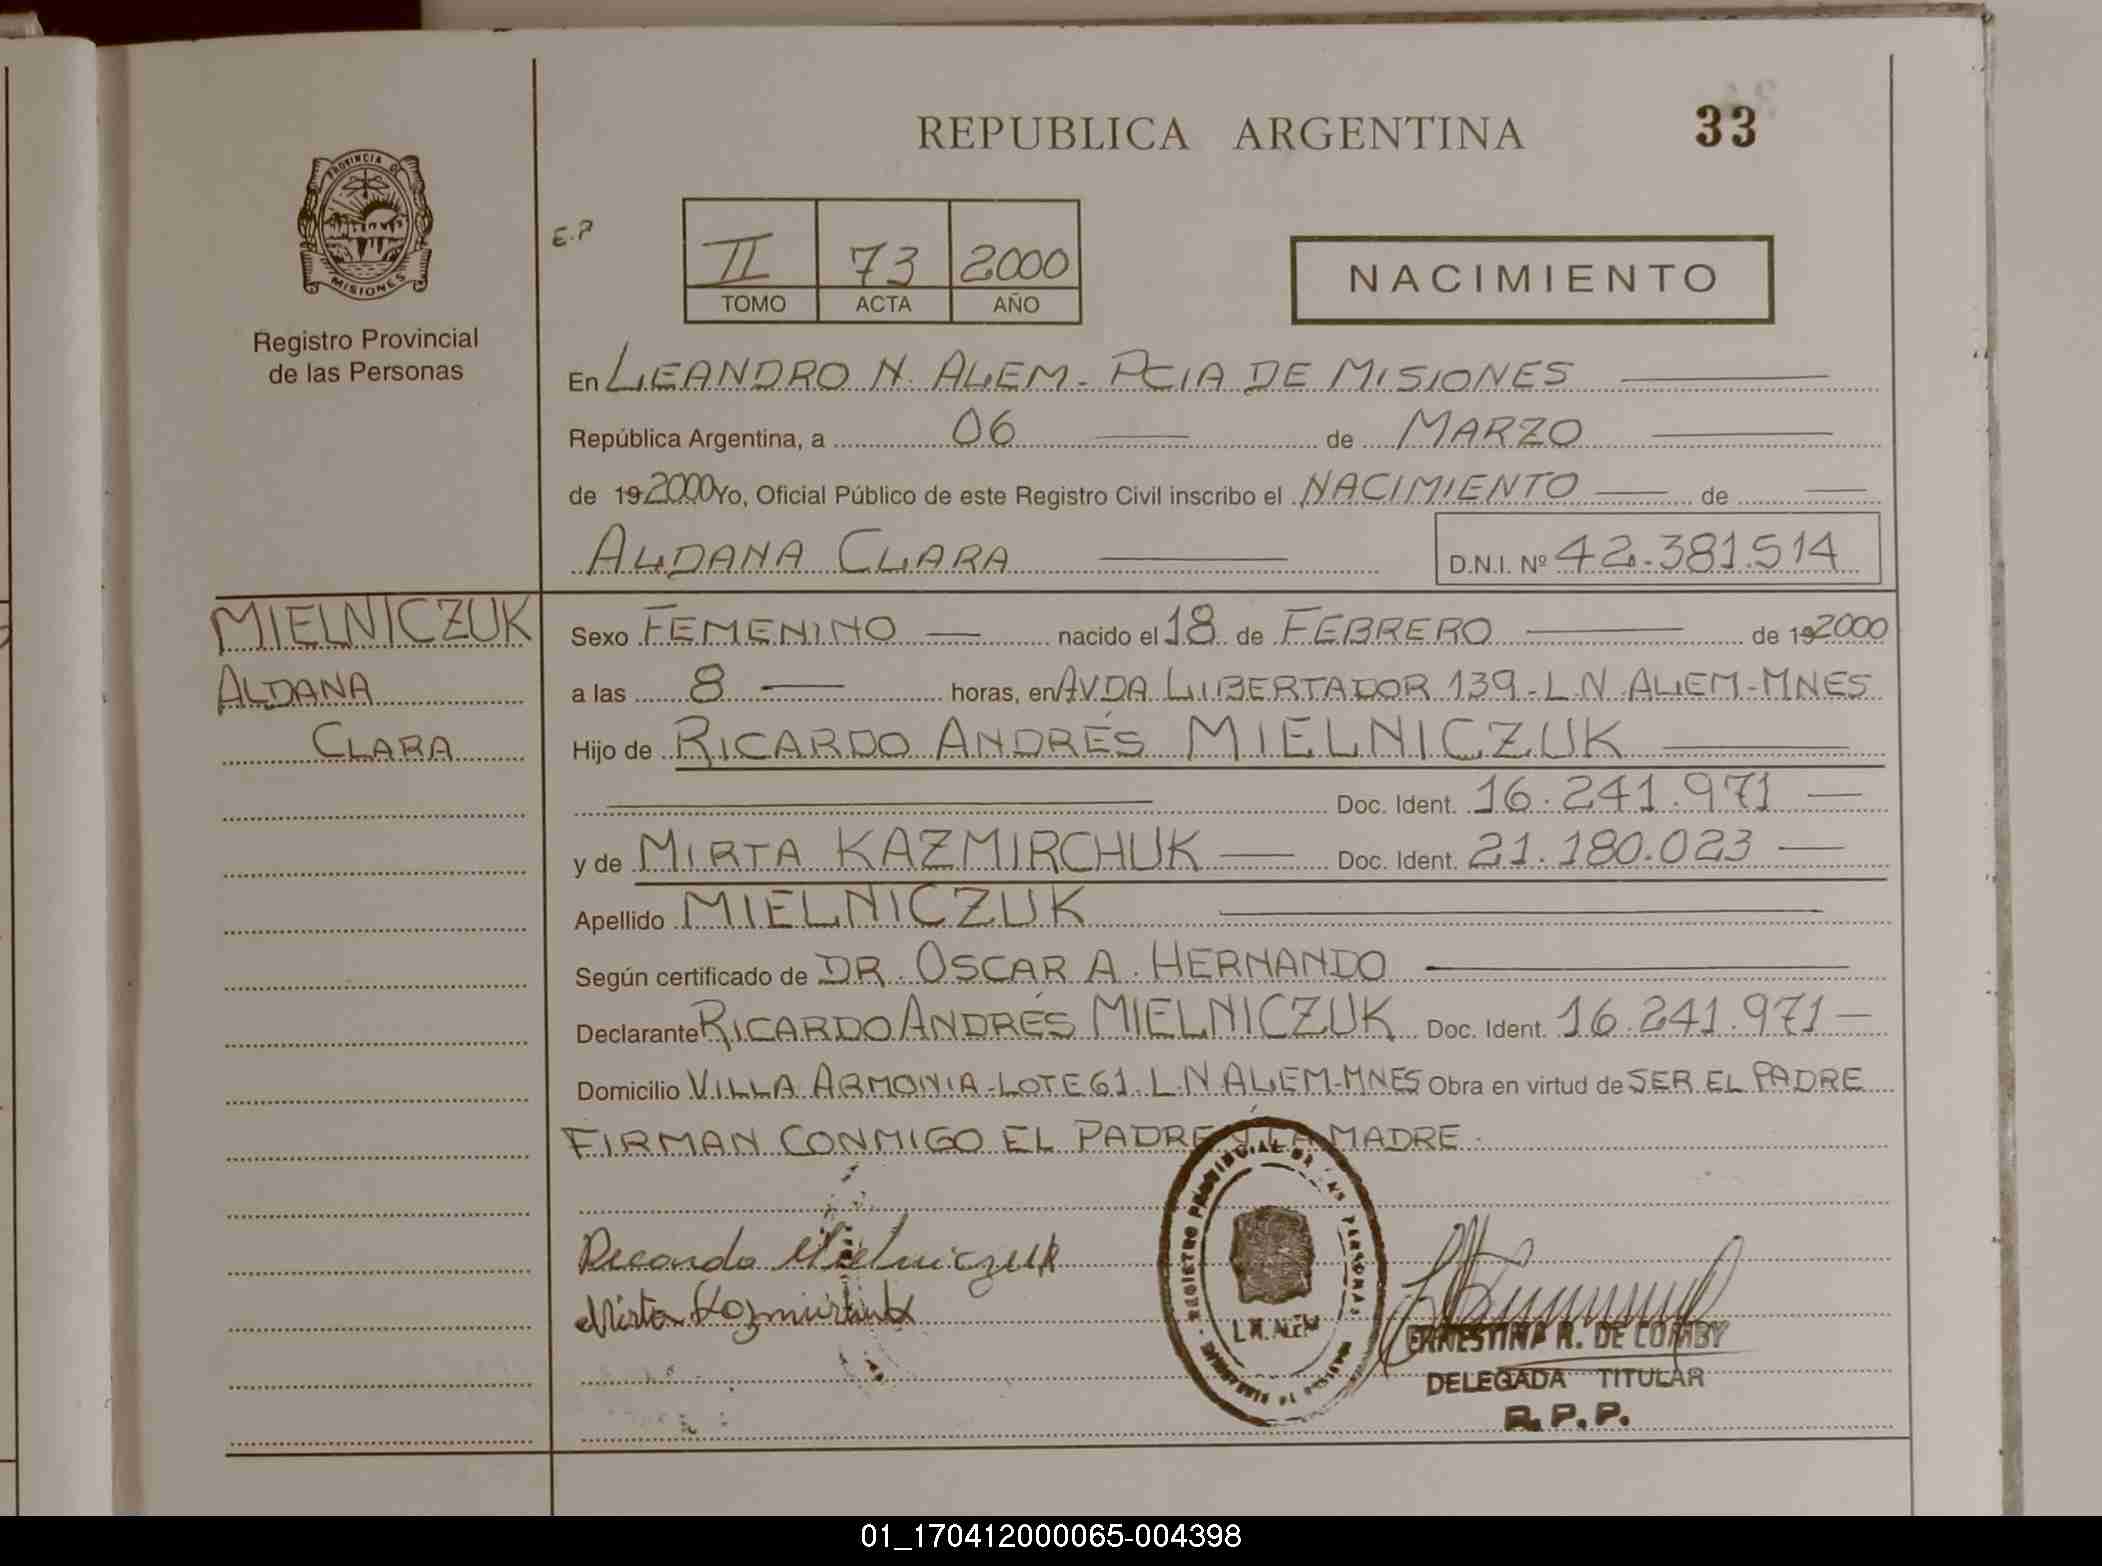 REPUBLICA ARGENTINA 33
PROVINCIA DE
MISIONES
Registro Provincial
de las Personas
E.P
II 73 2000
TOMO ACTA AÑO
NACIMIENTO
En LEANDRO N. ALEM - PCIA DE MISIONES
República Argentina, a 06 de MARZO
de 192000 Yo, Oficial Público de este Registro Civil inscribo el NACIMIENTO de
ALDANA CLARA D.N.I. Nº 42.381.514
MIELNICZUK
ALDANA
CLARA
Sexo FEMENINO nacido el 18 de FEBRERO de 192000
a las 8 horas, en AVDA LIBERTADOR 139 - L N ALEM - MNES
Hijo de RICARDO ANDRÉS MIELNICZUK
Doc. Ident. 16.241.971
y de MIRTA KAZMIRCHUK Doc. Ident. 21.180.023
Apellido MIELNICZUK
Según certificado de DR. OSCAR A. HERNANDO
Declarante RICARDO ANDRÉS MIELNICZUK Doc. Ident. 16.241.971
Domicilio VILLA ARMONIA - LOTE 61 L N ALEM - MNES Obra en virtud de SER EL PADRE
FIRMAN CONMIGO EL PADRE Y LA MADRE.
Ricardo Mielniczuk
Mirta Kazmirchuk
REGISTRO PROVINCIAL DE LAS PERSONAS
L.N. ALEM
ERNESTINA R. DE COMBY
DELEGADA TITULAR
R.P.P.
01_170412000065-004398